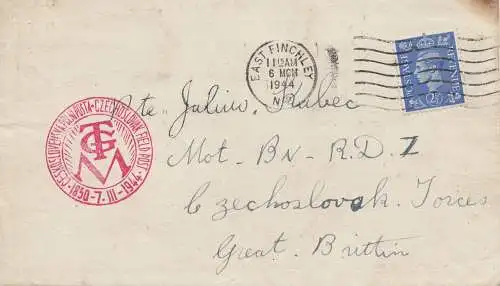 EAST FINCHLEY
11 15AM
6 MCH
1944
N.2
POSTAGE REVENUE
2½D
ČESKOSLOVENSKÁ POLNÍ POŠTA-CZECHOSLOVAK FIELD POST
TGM
1850-7.III-1944
Pte Julius Kubec
Mot-BN-R.D.Z
Czechoslovak Forces
Great Brittin